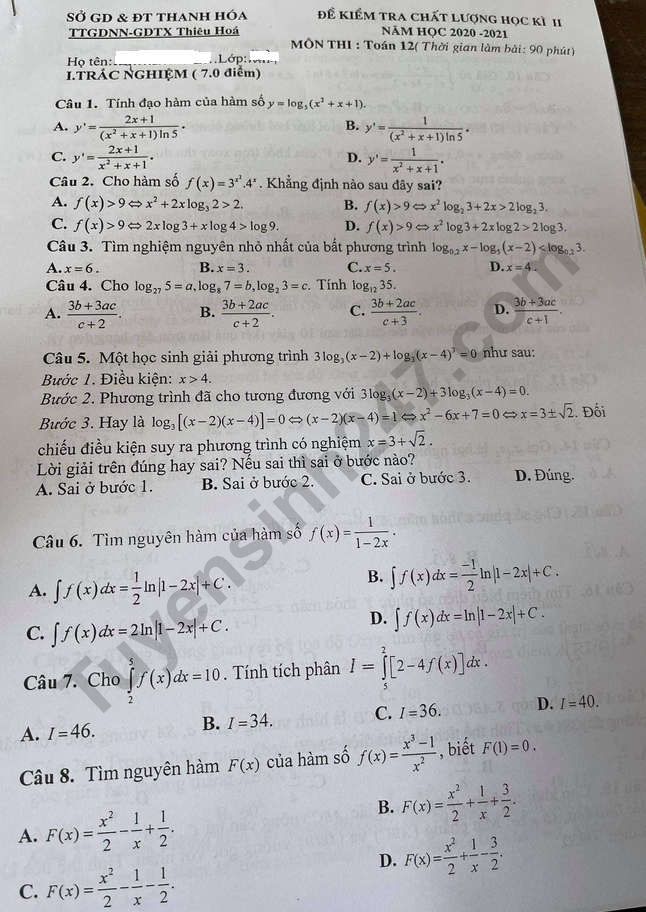 SỞ GD & ĐT THANH HÓA
TTGDNN-GDTX Thiệu Hoá
ĐỀ KIỂM TRA CHẤT LƯỢNG HỌC KÌ II
NĂM HỌC 2020 -2021
MÔN THI : Toán 12( Thời gian làm bài: 90 phút)
Họ tên: Lớp:
I.TRẮC NGHIỆM ( 7.0 điểm)
Câu 1. Tính đạo hàm của hàm số y = log₅(x² + x + 1).
A. y' = (2x+1)/((x² + x + 1) ln 5). B. y' = 1/((x² + x + 1) ln 5).
C. y' = (2x+1)/(x² + x + 1). D. y' = 1/(x² + x + 1).
Câu 2. Cho hàm số f(x) = 3^(x²).4^x. Khẳng định nào sau đây sai?
A. f(x) > 9 ⇔ x² + 2x log₃ 2 > 2. B. f(x) > 9 ⇔ x² log₂ 3 + 2x > 2 log₂ 3.
C. f(x) > 9 ⇔ 2x log 3 + x log 4 > log 9. D. f(x) > 9 ⇔ x² log 3 + 2x log 2 > 2 log 3.
Câu 3. Tìm nghiệm nguyên nhỏ nhất của bất phương trình log₀,₂ x − log₅(x − 2) < log₀,₂ 3.
A. x = 6. B. x = 3. C. x = 5. D. x = 4.
Câu 4. Cho log₂₇ 5 = a, log₈ 7 = b, log₂ 3 = c. Tính log₁₂ 35.
A. (3b + 3ac)/(c + 2). B. (3b + 2ac)/(c + 2). C. (3b + 2ac)/(c + 3). D. (3b + 3ac)/(c + 1).
Câu 5. Một học sinh giải phương trình 3 log₃(x − 2) + log₃(x − 4)³ = 0 như sau:
Bước 1. Điều kiện: x > 4.
Bước 2. Phương trình đã cho tương đương với 3 log₃(x − 2) + 3 log₃(x − 4) = 0.
Bước 3. Hay là log₃[(x − 2)(x − 4)] = 0 ⇔ (x − 2)(x − 4) = 1 ⇔ x² − 6x + 7 = 0 ⇔ x = 3 ± √2. Đối
chiếu điều kiện suy ra phương trình có nghiệm x = 3 + √2.
Lời giải trên đúng hay sai? Nếu sai thì sai ở bước nào?
A. Sai ở bước 1. B. Sai ở bước 2. C. Sai ở bước 3. D. Đúng.
Câu 6. Tìm nguyên hàm của hàm số f(x) = 1/(1 − 2x).
A. ∫ f(x) dx = 1/2 ln|1 − 2x| + C. B. ∫ f(x) dx = −1/2 ln|1 − 2x| + C.
C. ∫ f(x) dx = 2 ln|1 − 2x| + C. D. ∫ f(x) dx = ln|1 − 2x| + C.
Câu 7. Cho ∫₂⁵ f(x) dx = 10. Tính tích phân I = ∫₅² [2 − 4f(x)] dx.
A. I = 46. B. I = 34. C. I = 36. D. I = 40.
Câu 8. Tìm nguyên hàm F(x) của hàm số f(x) = (x³ − 1)/x², biết F(1) = 0.
A. F(x) = x²/2 − 1/x + 1/2. B. F(x) = x²/2 + 1/x + 3/2.
C. F(x) = x²/2 − 1/x − 1/2. D. F(x) = x²/2 + 1/x − 3/2.
Tuyensinh247.com